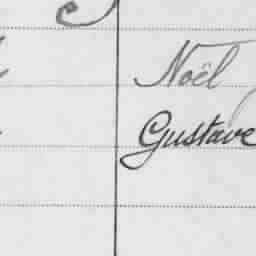 Noël
Gustave